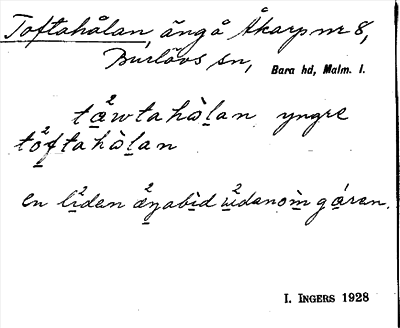 Toftahålan, äng å Åkarp nr 8,
Burlövs sn, Bara hd, Malm. l.
tä²wtahò̱lan yngre
tö²ftahò̱lan
en li²den æ²ŋabìd u²danòm gá̱ran.
I. INGERS 1928